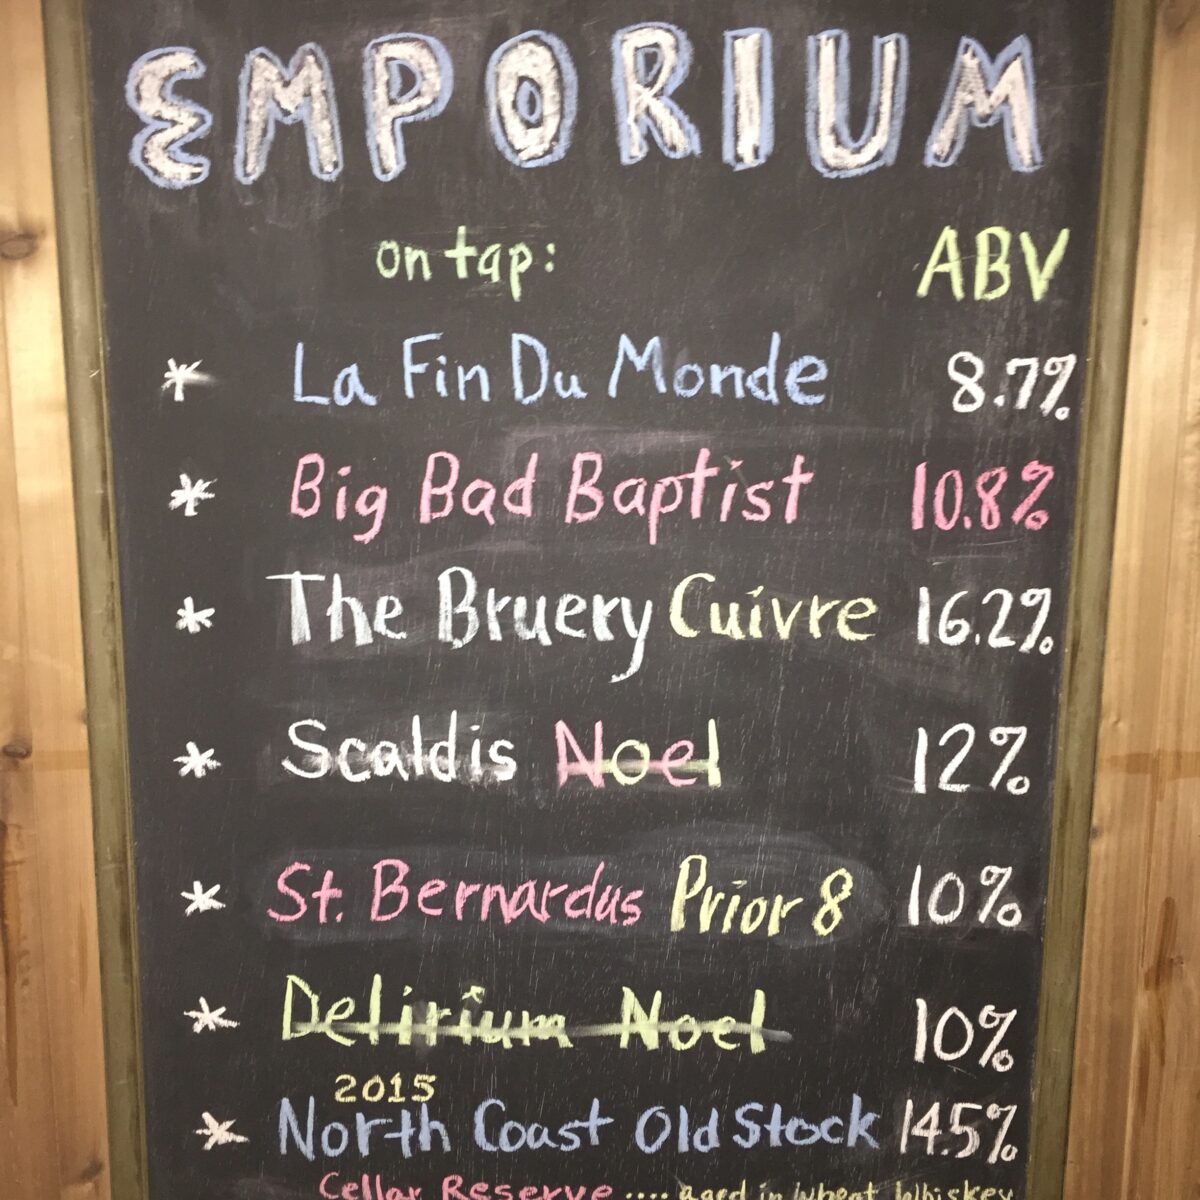 EMPORIUM
on tap: ABV
* La Fin Du Monde 8.7%
* Big Bad Baptist 10.8%
* The Bruery Cuivre 16.2%
* Scaldis Noel 12%
* St. Bernardus Prior 8 10%
* Delirium Noel 10%
2015
* North Coast Old Stock 14.5%
Cellar Reserve .... aged in Wheat Whiskey